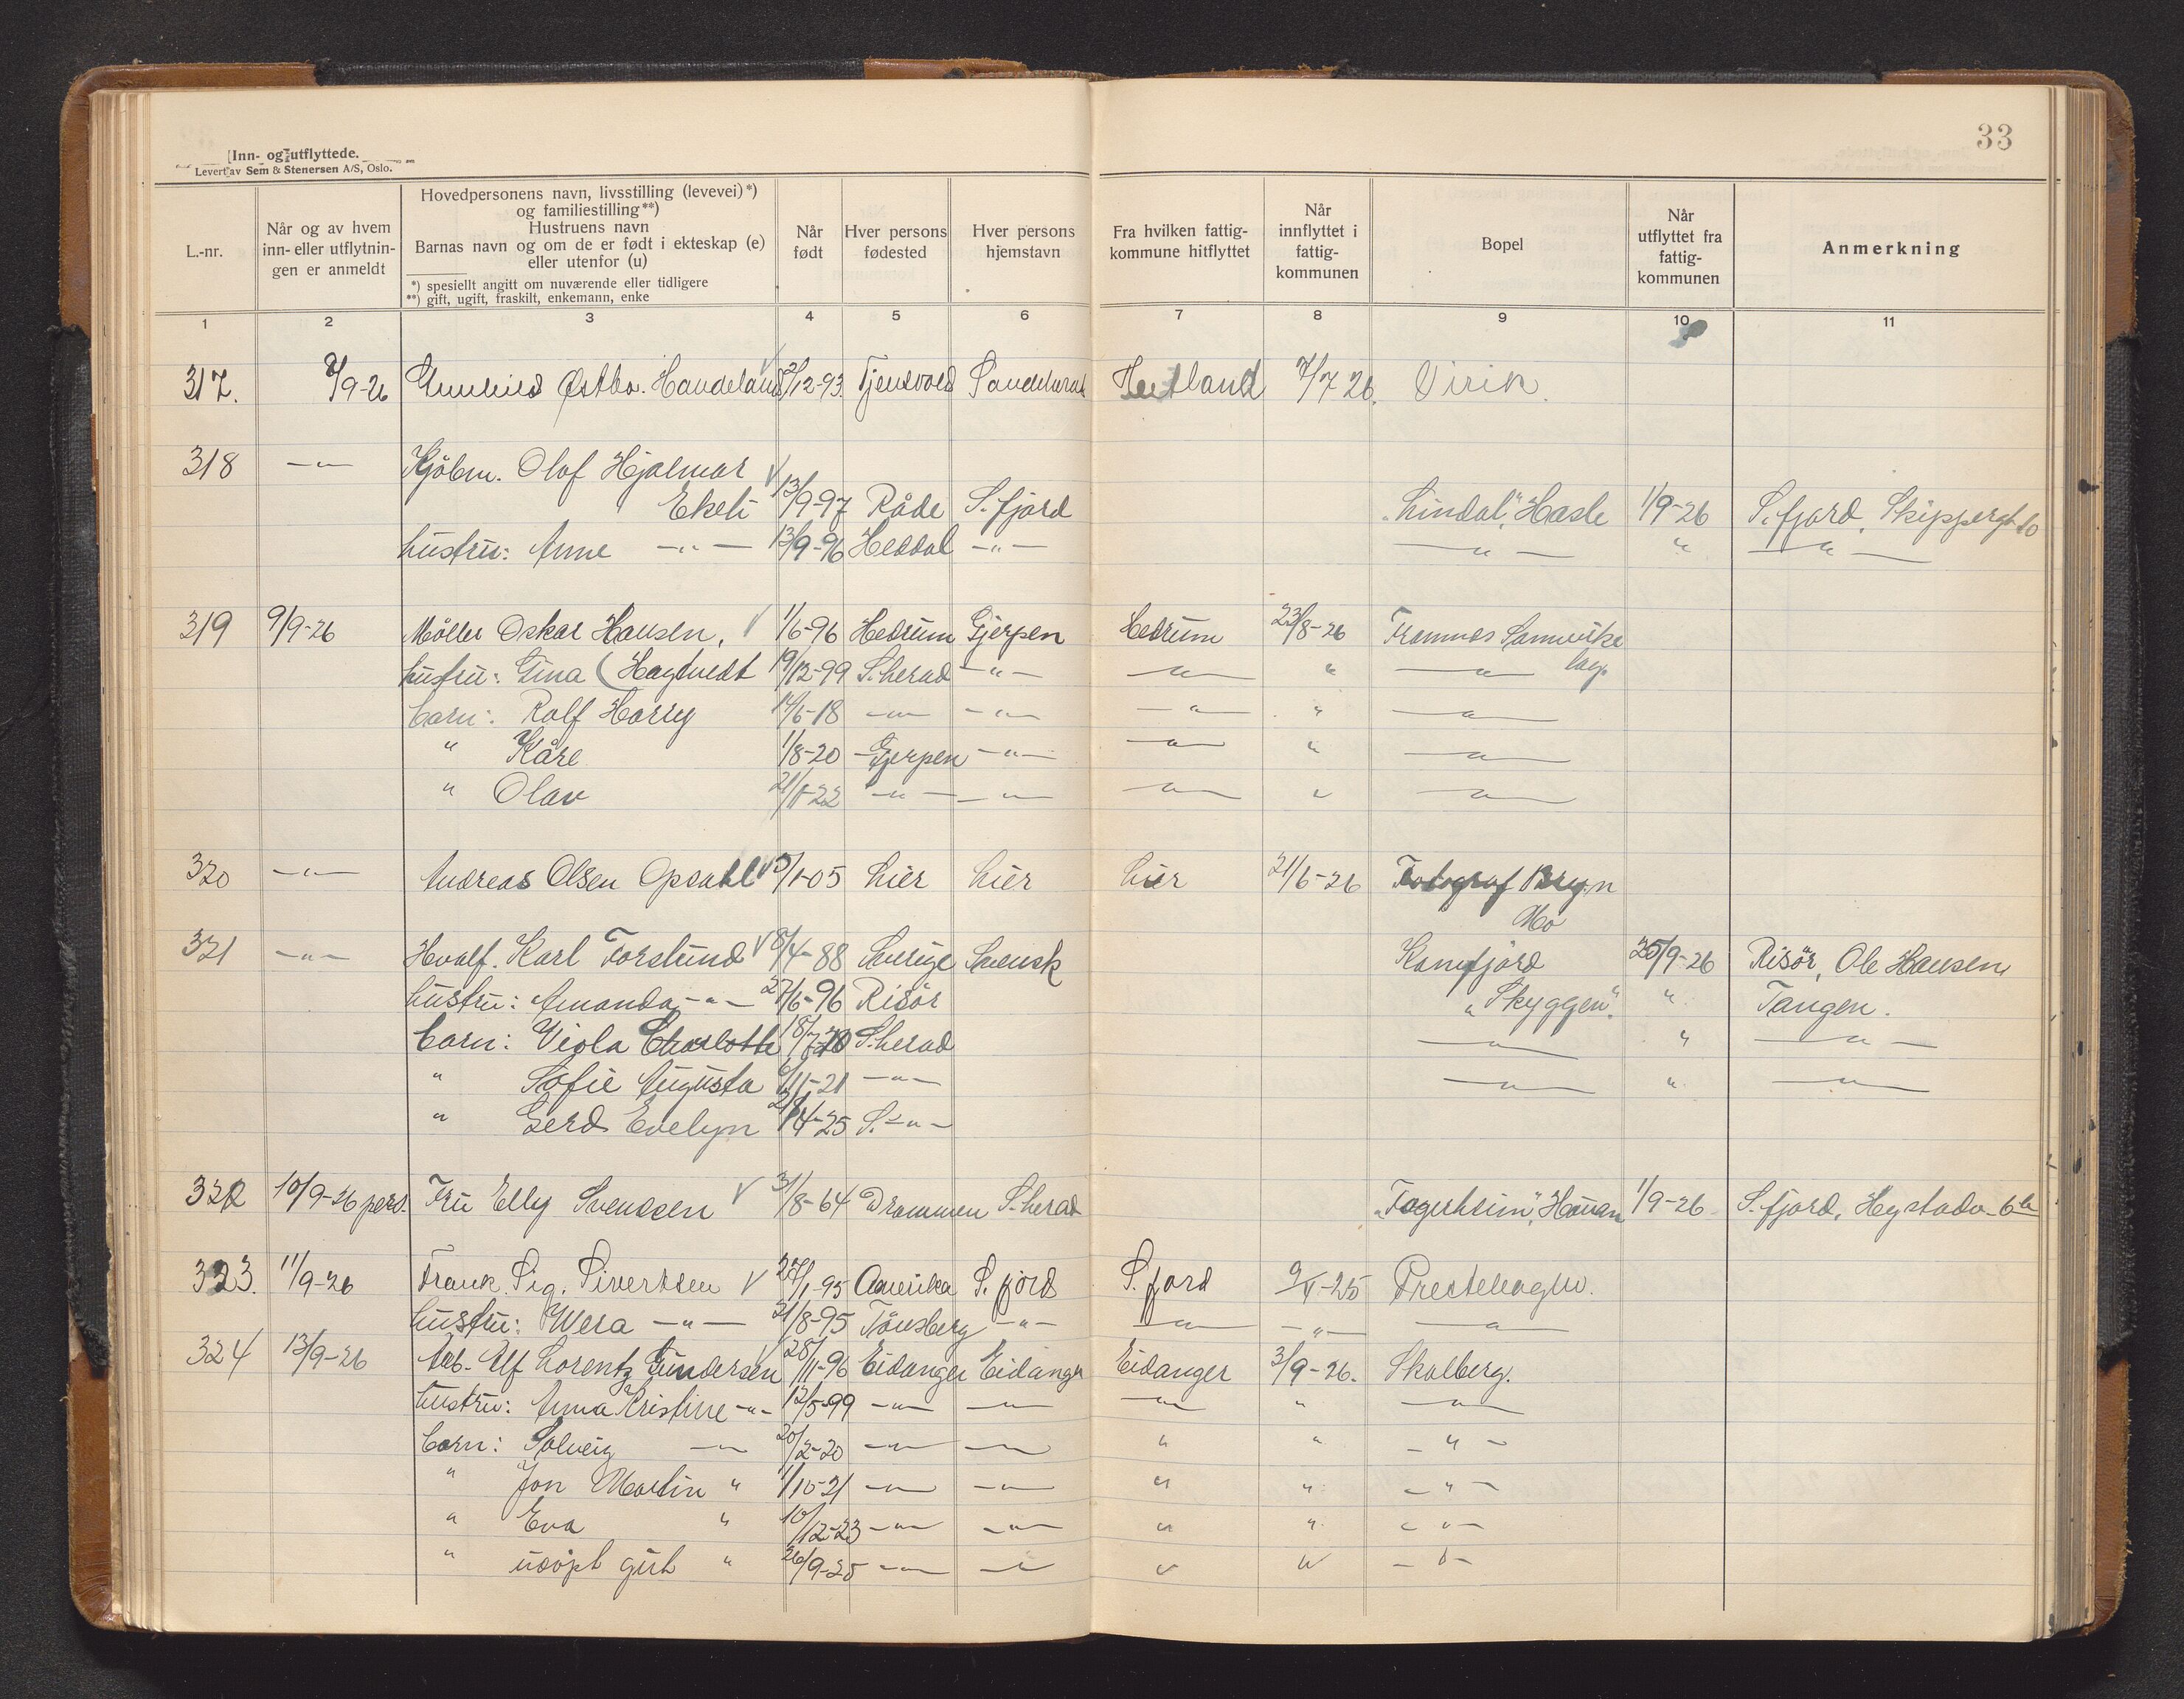 33
Inn- og utflyttede.
Levert av Sem & Stenersen A/S, Oslo.
L.-nr.
Når og av hvem inn- eller utflytnin- gen er anmeldt
Hovedpersonens navn, livsstilling (levevei)*) og familiestilling**)
Hustruens navn
Barnas navn og om de er født i ekteskap (e) eller utenfor (u)
*) spesiellt angitt om nuværende eller tidligere
**) gift, ugift, fraskilt, enkemann, enke
Når født
Hver persons fødested
Hver persons hjemstavn
Fra hvilken fattig- kommune hitflyttet
Når innflyttet i fattig- kommunen
Bopel
Når utflyttet fra fattig- kommunen
Anmerkning
1 2 3 4 5 6 7 8 9 10 11
317. /9-26 Østbo. Haudeland /12-93. Tjensvold Hetland 7/7 26. Virik.
318 -"- Kjöbm. Olaf Hjalmar
Ekeli 13/9-97 Råde S. fjord "Lindal", Hasle 1/9-26 S. fjord, Skippergt 10
hustru: Anne -"- 13/9-96 Heddal -"- -"- " -"-
319 9/9-26 Möller Oskar Hansen, 1/6-96 Hedrum Gjerpen Hedrum 23/8-26 Framnes Samvirke
lag.
hustru: Gina (Hagtvedt 19/12-99 S. herad -"- -"- " -"-
barn: Rolf Harry 14/6-18 -"- -"- -"- " -"-
" Kåre 1/8-20 Gjerpen -"- -"- " -"-
" Olav 21/1-22 -"- -"- -"- " -"-
320 -"- Andreas Olsen Opsahl /1-05 Lier Lier Lier 21/6-26 Fotograf Bryn
Mo
321 -"- Hvalf. Karl Forslund 8/4-88 Sverige Svensk Kamfjord 25/9-26 Risör, Ole Hansen
hustru: Amanda -"- 27/6-96 Risör "Skyggen". " Tangen.
barn: Viola Charlotte 18/7-20 S. herad -"- " -"-
" Sofie Augusta 6/11-21 -"- -"- " -"-
" Gerd Evelyn /4-25 S. -"-
322 10/9-26 pers. Fru Elly Svenssen 31/8-64 Drammen S. herad "Fagerheim", Hauan 1/9-26 S. fjord, Hystadv. 6b
323. 11/9-26 Frank Sig. Sivertsen 27/1-95 Amerika S. fjord S. fjord 9/-25 Prestehagen.
hustru: Wera -"- 21/8-95 Tönsberg -"- -"- -"- -"-
324 13/9-26 Arb. Alf Lorentz Gundersen 28/11-96 Eidanger Eidanger Eidanger 3/9-26. Skolberg.
hustru: Anna Kristine -"- 12/5-99 -"- -"- -"- " -"-
barn: Solveig -"- 20/2-20 -"- -"- " " -"-
" Jon Martin " 1/10-21 -"- -"- " " -"-
" Eva " 10/12-23 -"- -"- " " -"-
" udöpt gut " 26/9-25 -"- -"- " " -"-